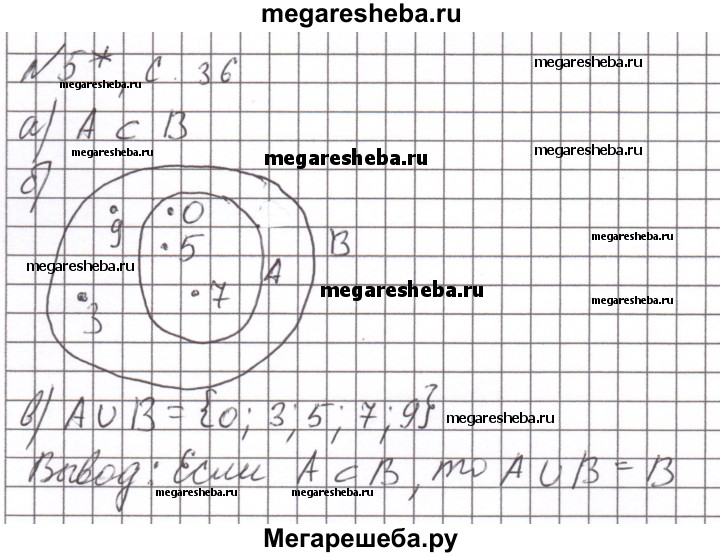 megaresheba.ru
№5*, с. 36
megaresheba.ru
megaresheba.ru
а) A ⊂ B
megaresheba.ru
megaresheba.ru
megaresheba.ru
б)
9
0
5
B
megaresheba.ru
megaresheba.ru
A
7
megaresheba.ru
megaresheba.ru
3
в) A ∪ B = {0; 3; 5; 7; 9}
megaresheba.ru
Вывод: Если A ⊂ B, то A ∪ B = B
megaresheba.ru
megaresheba.ru
Мегарешеба.ру